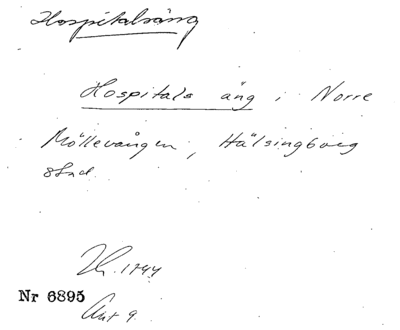 Hospitalsäng
Hospitals äng i Norre
Möllevången, Hälsingborg
1744
Nr 6895
Akt 9.